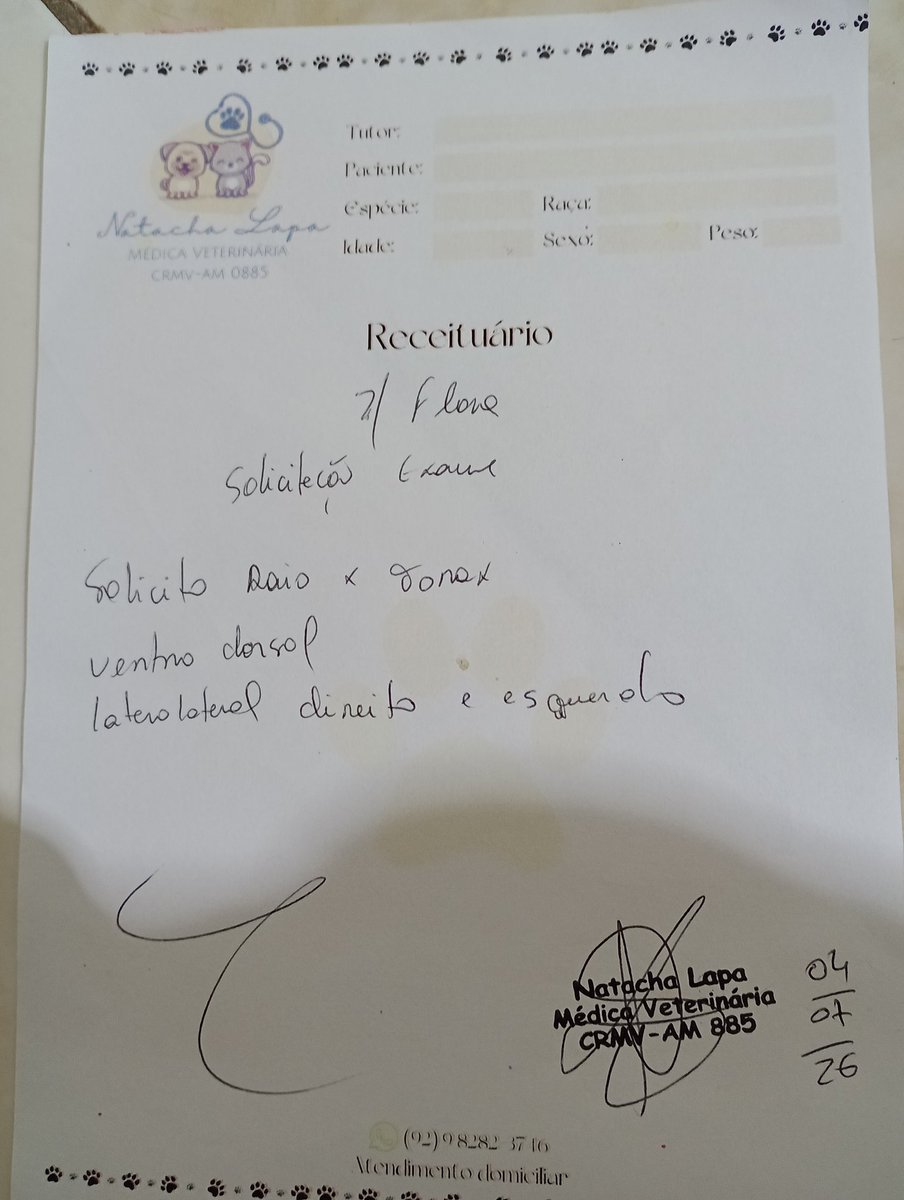 Natacha Lapa
MÉDICA VETERINÁRIA
CRMV-AM 0885
Tutor:
Paciente:
Espécie: Raça:
Idade: Sexo: Peso:
Receituário
p/ Flora
Solicitação Exame
Solicito Raio x Torax
ventro dorsal
laterolateral direito e esquerdo
Natacha Lapa
Médica Veterinária
CRMV-AM 885
04
07
26
(92) 98282 3746
Atendimento domiciliar